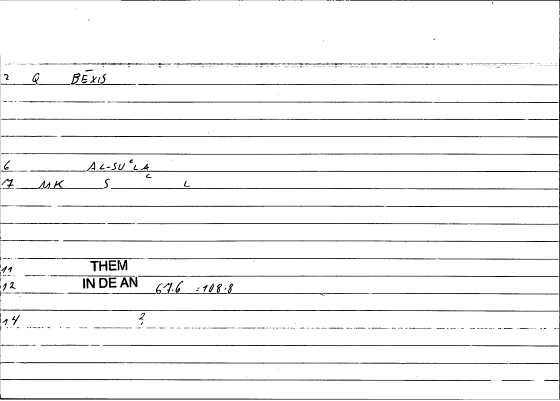 2 Q BĒXIS
6 AL-SUʿLA
17 MK S L
11 THEM
12 IN DE AN 67.6 :108.8
14 2